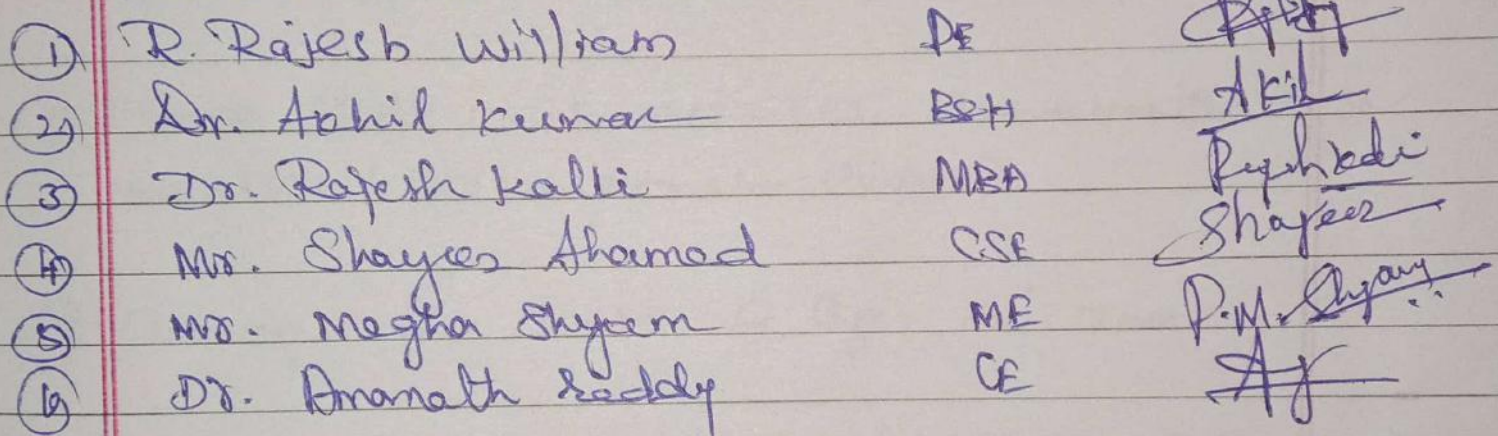 ① R. Rajesh William PE
② Dr. Akhil Kumar BSH Akil
③ Dr. Rajesh Kalli MBA
④ Mr. Shayeer Ahamad CSE Shayeer
⑤ Mr. Megha Shyam ME P.M. Shyam
⑥ Dr. Amarnath Reddy CE